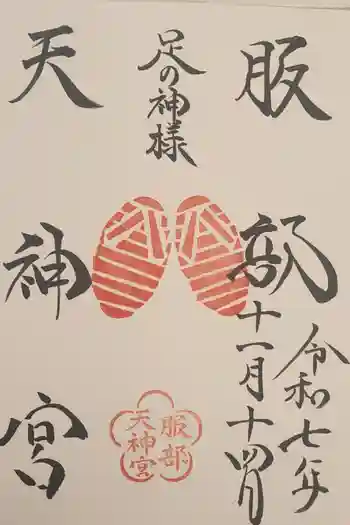 服部
天神宮
足の神様
令和七年
十一月十四日
服部
天神宮